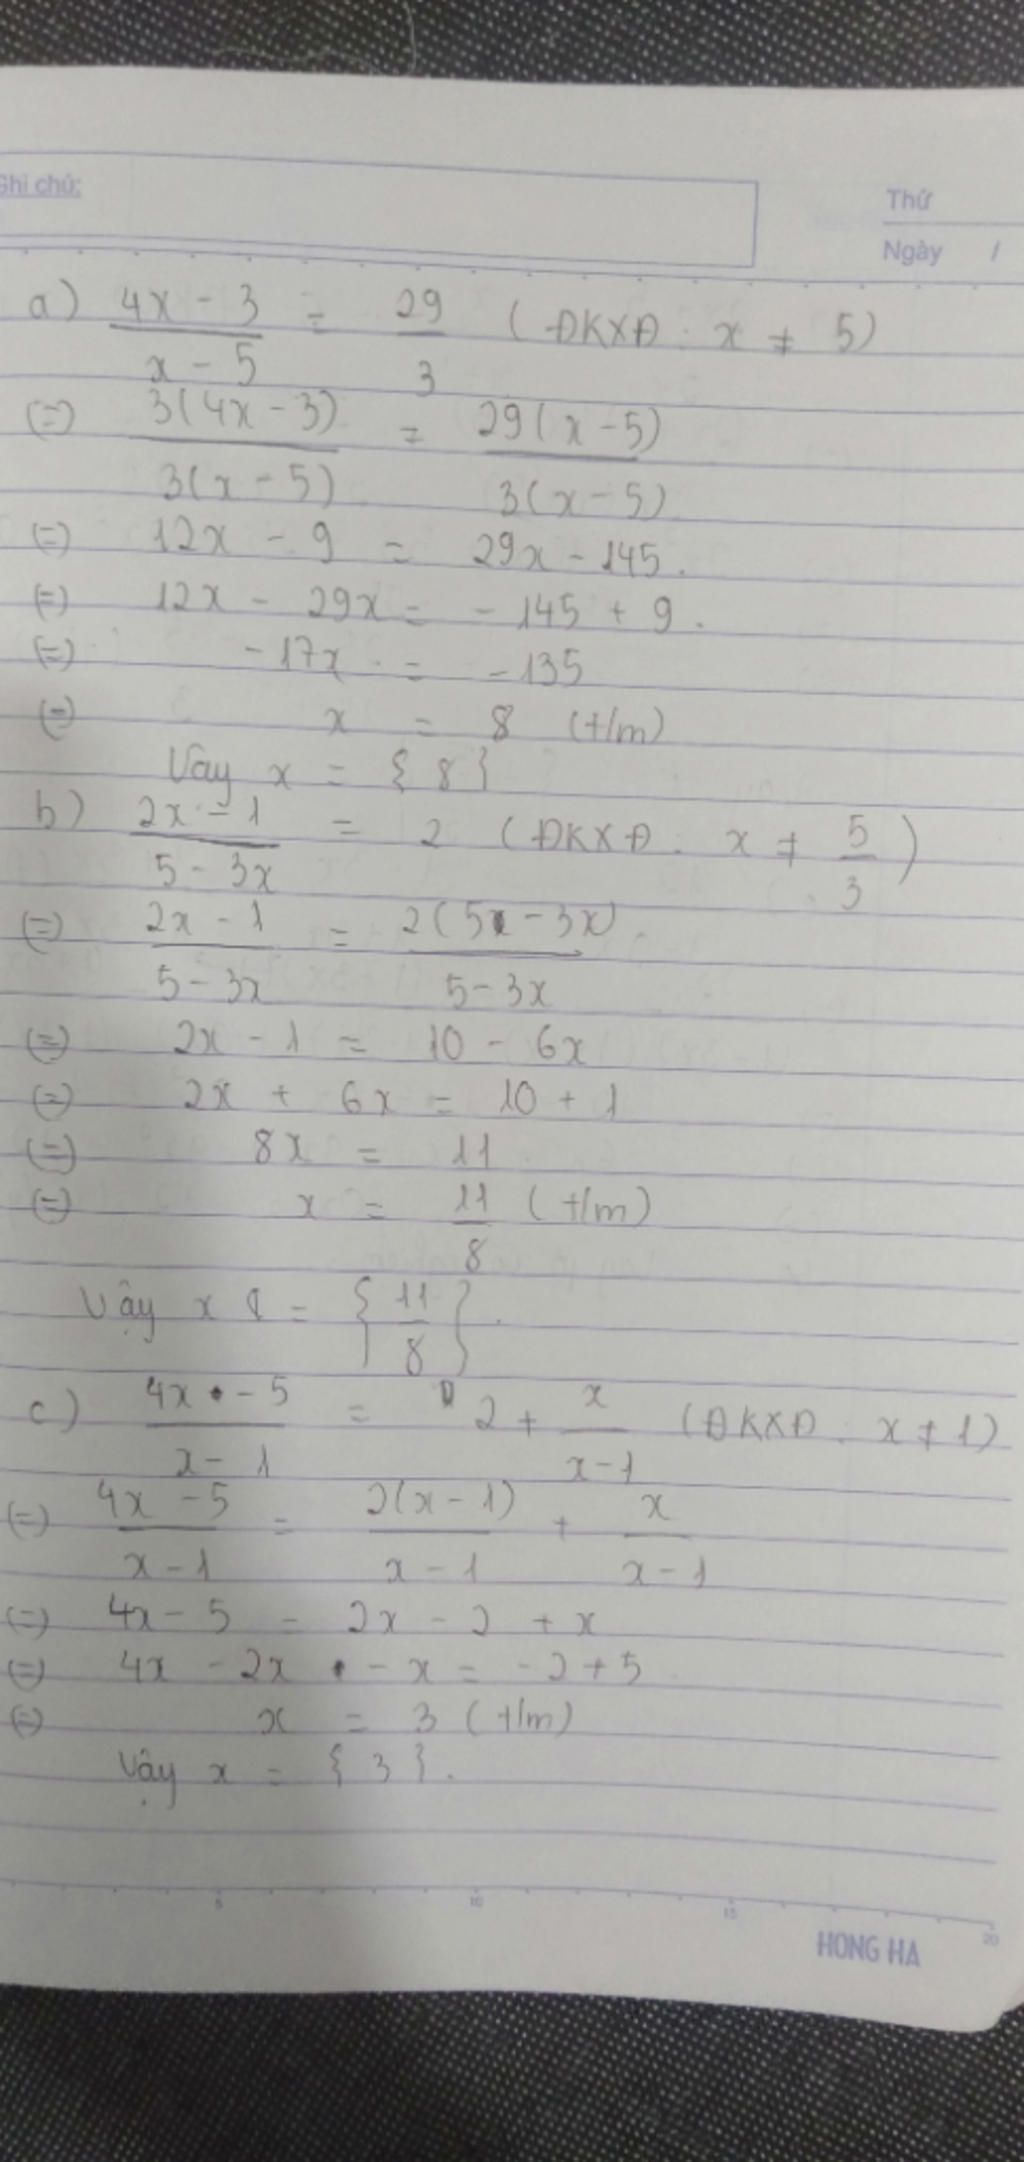 Ghi chú:
Thứ
Ngày /
a) (4x - 3)/(x - 5) = 29/3 (ĐKXĐ: x ≠ 5)
(=) 3(4x - 3)/3(x - 5) = 29(x - 5)/3(x - 5)
(=) 12x - 9 = 29x - 145.
(=) 12x - 29x = - 145 + 9.
(=) -17x = -135
(=) x = 8 (t/m)
Vay x = {8}
b) (2x - 1)/(5 - 3x) = 2 (ĐKXĐ: x ≠ 5/3)
(=) (2x - 1)/(5 - 3x) = 2(5x - 3x)/(5 - 3x)
(=) 2x - 1 = 10 - 6x
(=) 2x + 6x = 10 + 1
(=) 8x = 11
(=) x = 11/8 (t/m)
Vậy x = {11/8}.
c) (4x - 5)/(x - 1) = 2 + x/(x - 1) (ĐKXĐ: x ≠ 1)
(=) (4x - 5)/(x - 1) = 2(x - 1)/(x - 1) + x/(x - 1)
(=) 4x - 5 = 2x - 2 + x
(=) 4x - 2x - x = -2 + 5
(=) x = 3 (t/m)
Vậy x = {3}.
5 10 15 20
HONG HA